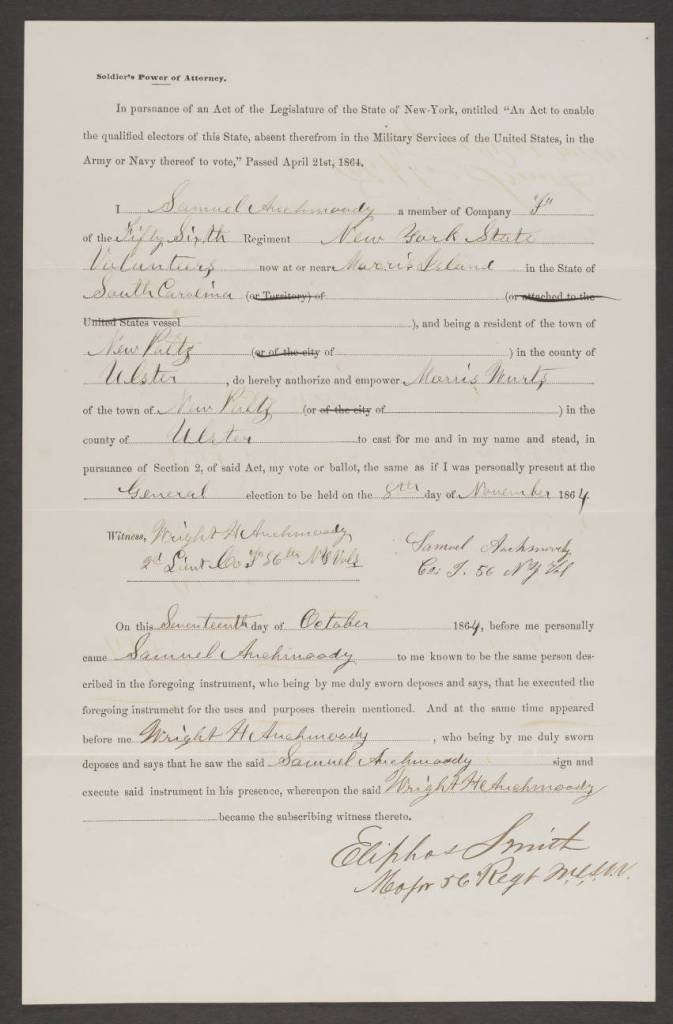 Soldier's Power of Attorney.
In pursuance of an Act of the Legislature of the State of New-York, entitled "An Act to enable
the qualified electors of this State, absent therefrom in the Military Services of the United States, in the
Army or Navy thereof to vote," Passed April 21st, 1864.
I Samuel Auchmoody a member of Company "F"
of the Fifty Sixth Regiment New York State
Volunteers now at or near Morris Island in the State of
South Carolina (or Territory) of (or attached to the
United States vessel ), and being a resident of the town of
New Paltz (or of the city of ) in the county of
Ulster , do hereby authorize and empower Morris Wurts
of the town of New Paltz (or of the city of ) in the
county of Ulster to cast for me and in my name and stead, in
pursuance of Section 2, of said Act, my vote or ballot, the same as if I was personally present at the
General election to be held on the 8th day of November 1864
Witness, Wright H Auchmoody
2d Lieut Co "F" 56th N.Y. Vols
Samuel Auchmoody
Co. F. 56 N Y Vol
On this Seventeenth day of October 1864, before me personally
came Samuel Auchmoody to me known to be the same person des-
cribed in the foregoing instrument, who being by me duly sworn deposes and says, that he executed the
foregoing instrument for the uses and purposes therein mentioned. And at the same time appeared
before me Wright H Auchmoody , who being by me duly sworn
deposes and says that he saw the said Samuel Auchmoody sign and
execute said instrument in his presence, whereupon the said Wright H Auchmoody
became the subscribing witness thereto.
Eliphas Smith
Major 56 Regt